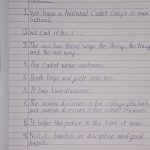 1. We have a National Cadet Corps in our school.
2. We call it N.C.C.
3. The ncc has three wings the Army, the Navy
and the air wing.
4. The Cadet wear uniform.
5. Both boys and girls Join ncc.
6. It has two division.
7. The senior division is for college students
and Junior division is for school students.
8. It helps the police in the time of
9. N.C.C. teaches us discipline and good